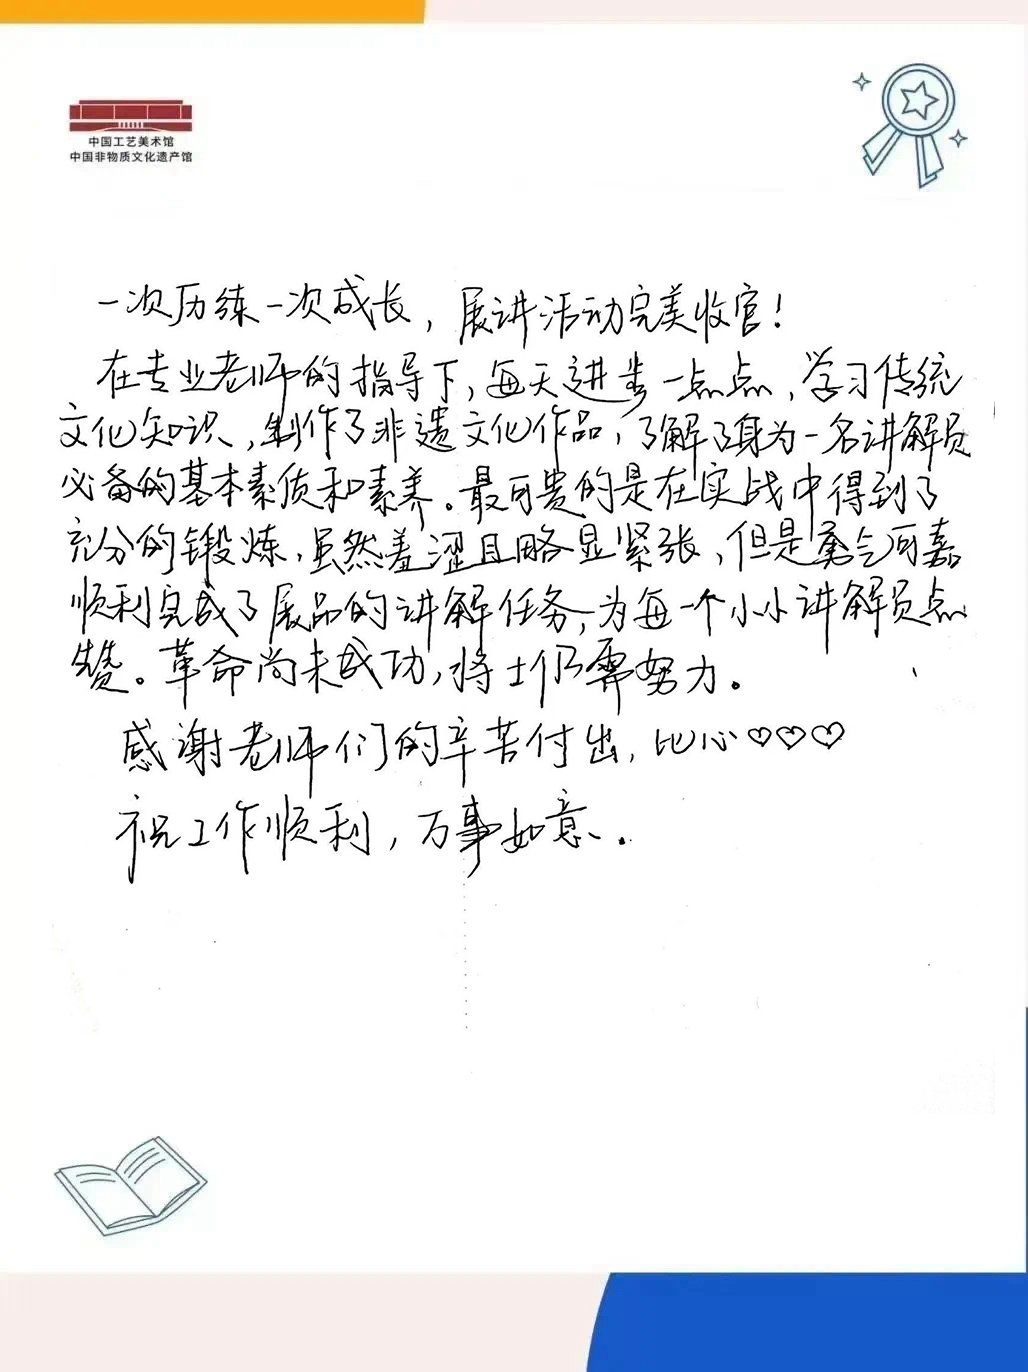 中国工艺美术馆
中国非物质文化遗产馆
一次历练一次成长，展讲活动完美收官！
在专业老师的指导下，每天进步一点点，学习传统
文化知识，制作了非遗文化作品，了解了身为一名讲解员
必备的基本素质和素养。最可贵的是在实战中得到了
充分的锻炼，虽然羞涩且略显紧张，但是勇气可嘉
顺利完成了展品的讲解任务，为每一个小小讲解员点
赞。革命尚未成功，将士仍需努力。
感谢老师们的辛苦付出，比心♡♡♡
祝工作顺利，万事如意。